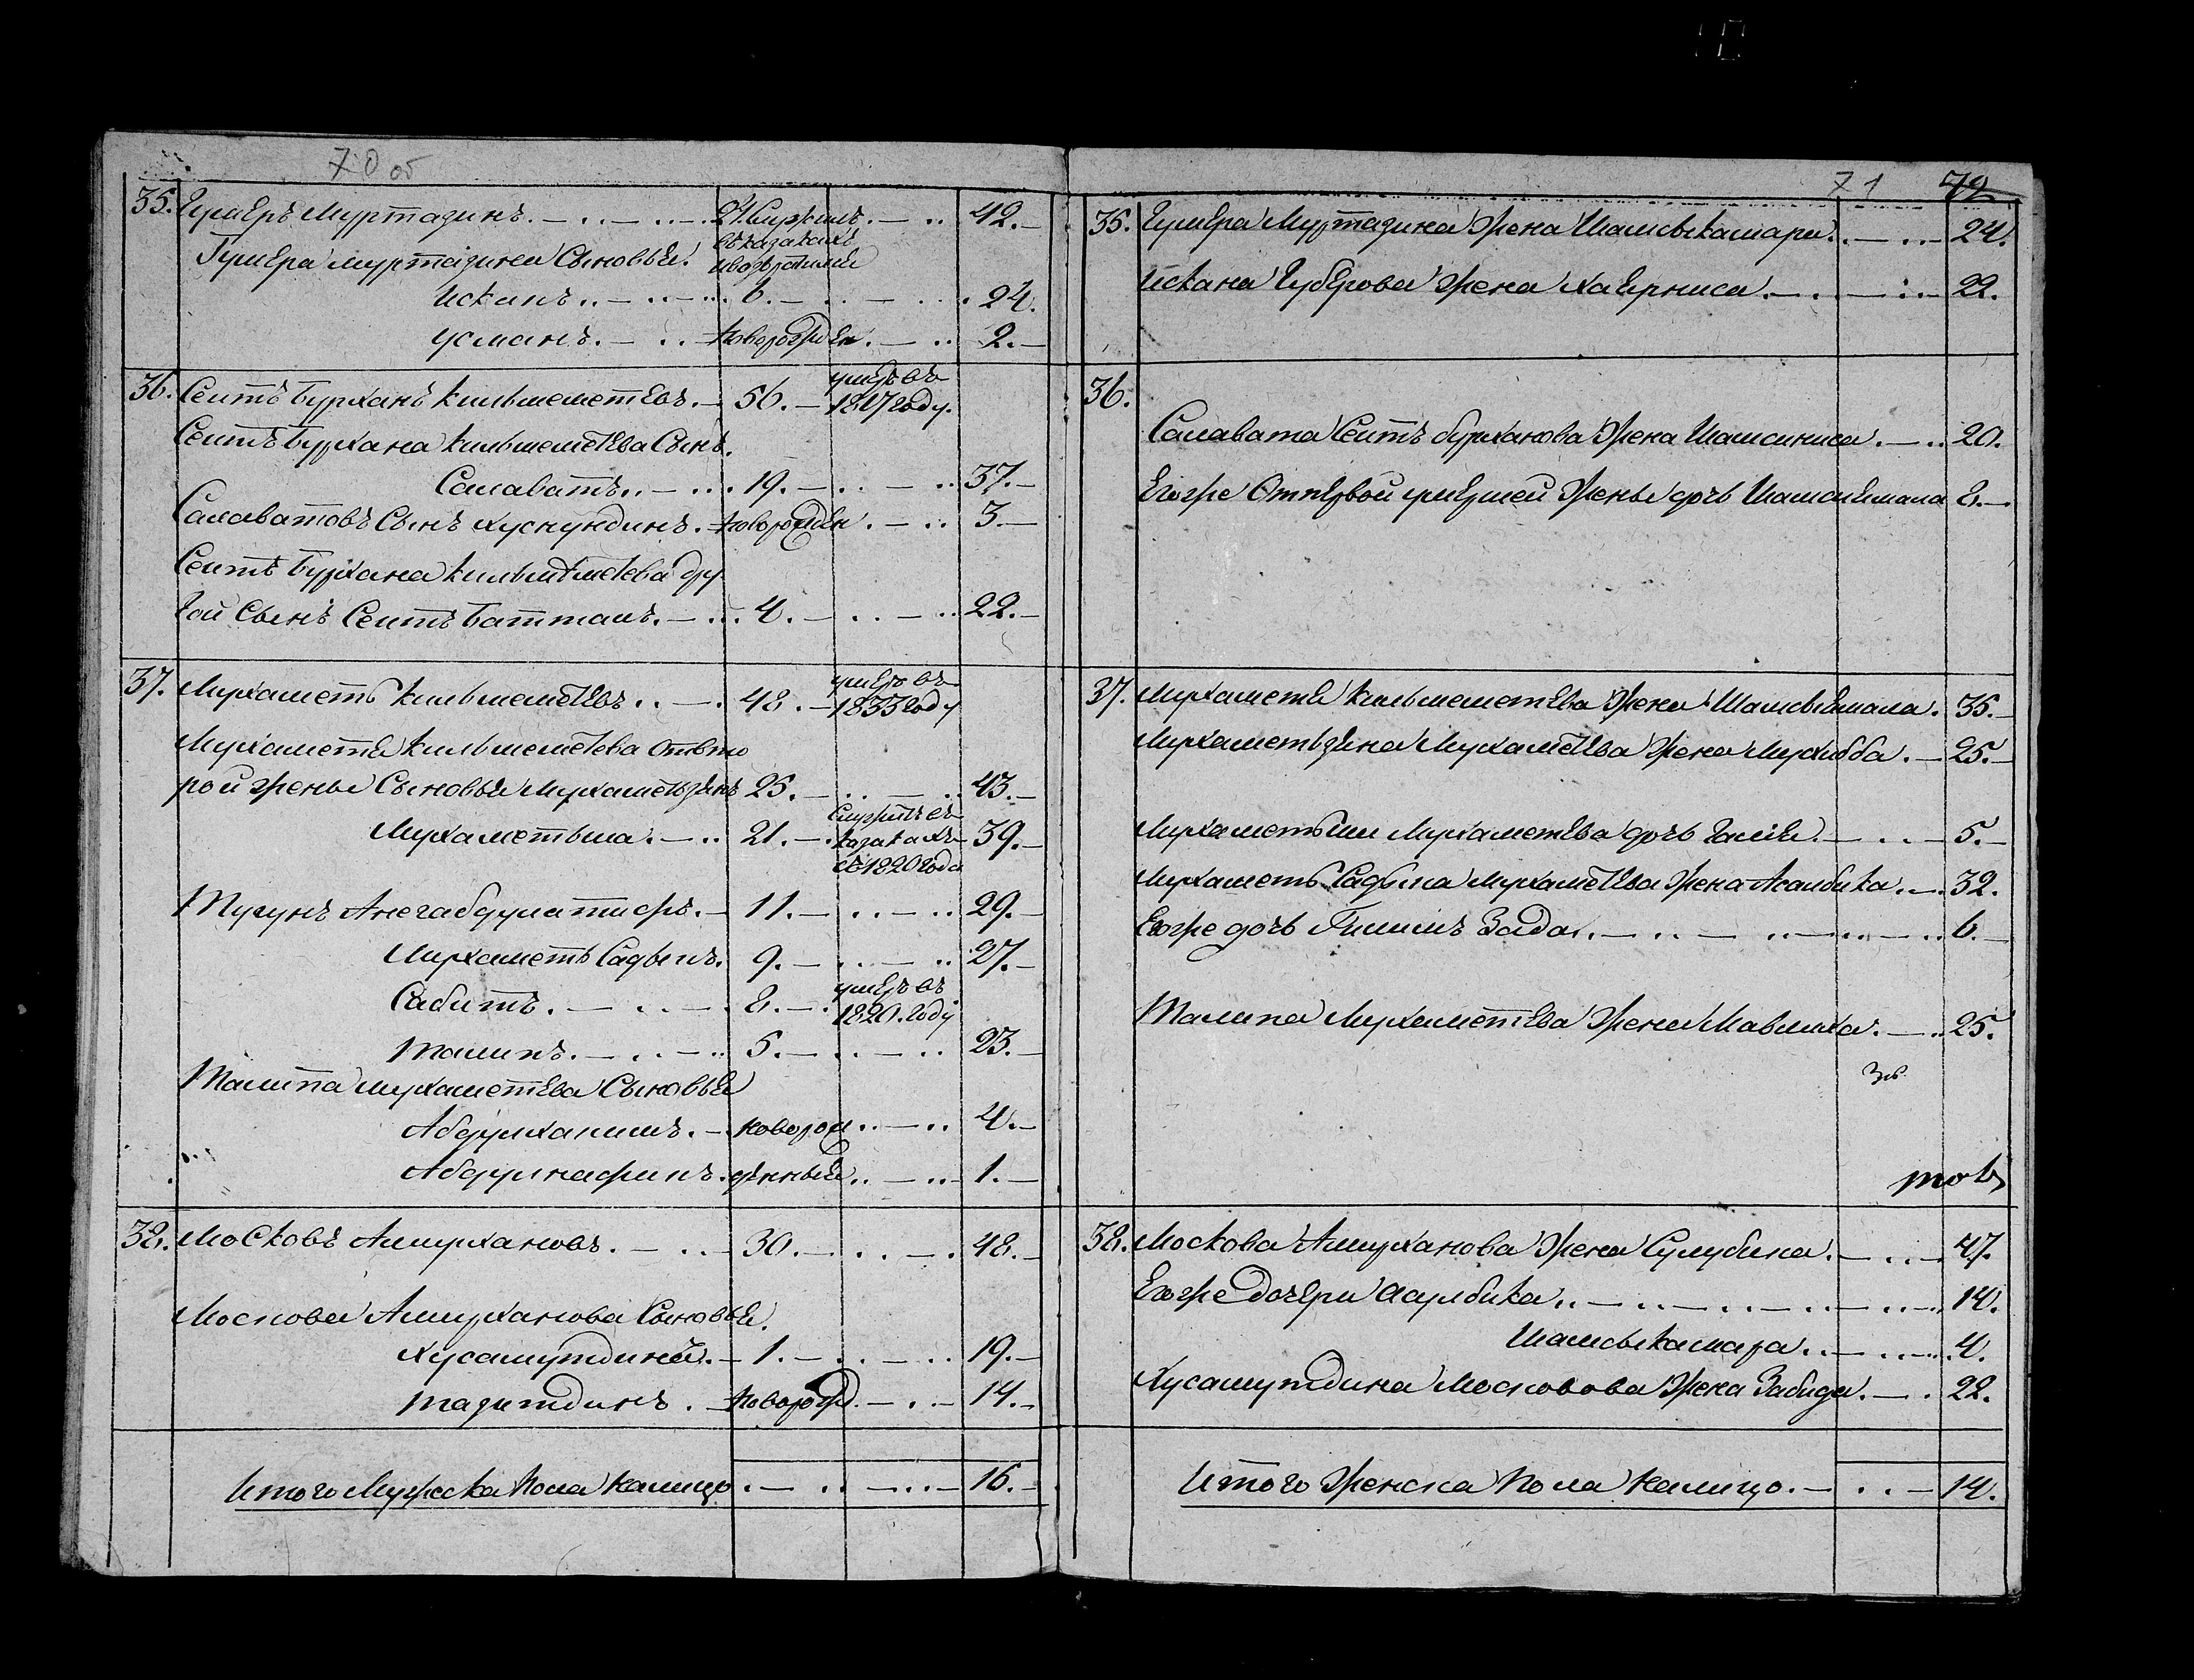 70 об
35. Гумеръ Муртазинъ. 24. служилъ. 42.
въ казакахъ
Гумера Муртазина Сыновья: и возвратился
Исканъ 6. 24.
Усманъ. Новорожден. 2.
36. Сеитъ Бурханъ Кильмеметевъ. 56. умеръ въ
1817 году.
Сеитъ Бурхана Кильмеметева Сынъ.
Салаватъ 19. 37.
Салаватовъ Сынъ Хуснундинъ. Новорожден. 3.
Сеитъ Бурхана Кильмеметева дру
гой Сынъ Сеитъ Батталъ. 4. 22.
37. Мухаметь Кильмеметевъ 48. умеръ въ
1833 году
Мухаметя Кильмеметева отвто
рой жены Сыновья Мухаметьзянъ 25. 43.
Мухаметьша. 21. служитъ въ
казакахъ 39.
съ 1820 года
Тугунъ Анегабдулатифъ. 11. 29.
Мухаметь Садыкъ. 9. 27.
Сабитъ. 8. умеръ въ
1820. году
Талипъ. 5. 23.
Талипа Мухаметева Сыновья
Абдулхалилъ. новорож 4.
Абдулнафикъ. денныя 1.
38. Московъ Амирхановъ. 30. 48.
Москова Амирханова Сыновья.
Хусамутдинъ. 1. 19.
Тазитдинъ. Новорожд. 14.
Итого Мужеска Пола налицо. 16.
71 72
35. Гумера Муртазина Жена Шамсыкамаря. 24.
Искана Губерова Жена Хаерниса. 22.
36.
Салавата Сеитъ бурханова Жена Шамсиниса. 20.
Егоже Отпервой умершей Жены дочь Шамсиемала 8.
37. Мухаметя Кильмеметева Жена Шамсыемала. 35.
Мухаметьзяна Мухаметева Жена Мухибба. 25.
Мухаметьши Мухаметева дочь Галия. 5.
Мухаметь Садыка Мухаметева Жена Асылбика. 32.
Егоже дочь Зада. 6.
Талипа Мухаметева Жена Мавлиха. 25.
38. Москова Амирханова Жена Сулубика. 47.
Егоже дочери Ааулбика 14.
Шамсыкамара 4.
Хусамутдина Московова Жена Забида. 22.
Итого Женска Пола налицо. 14.